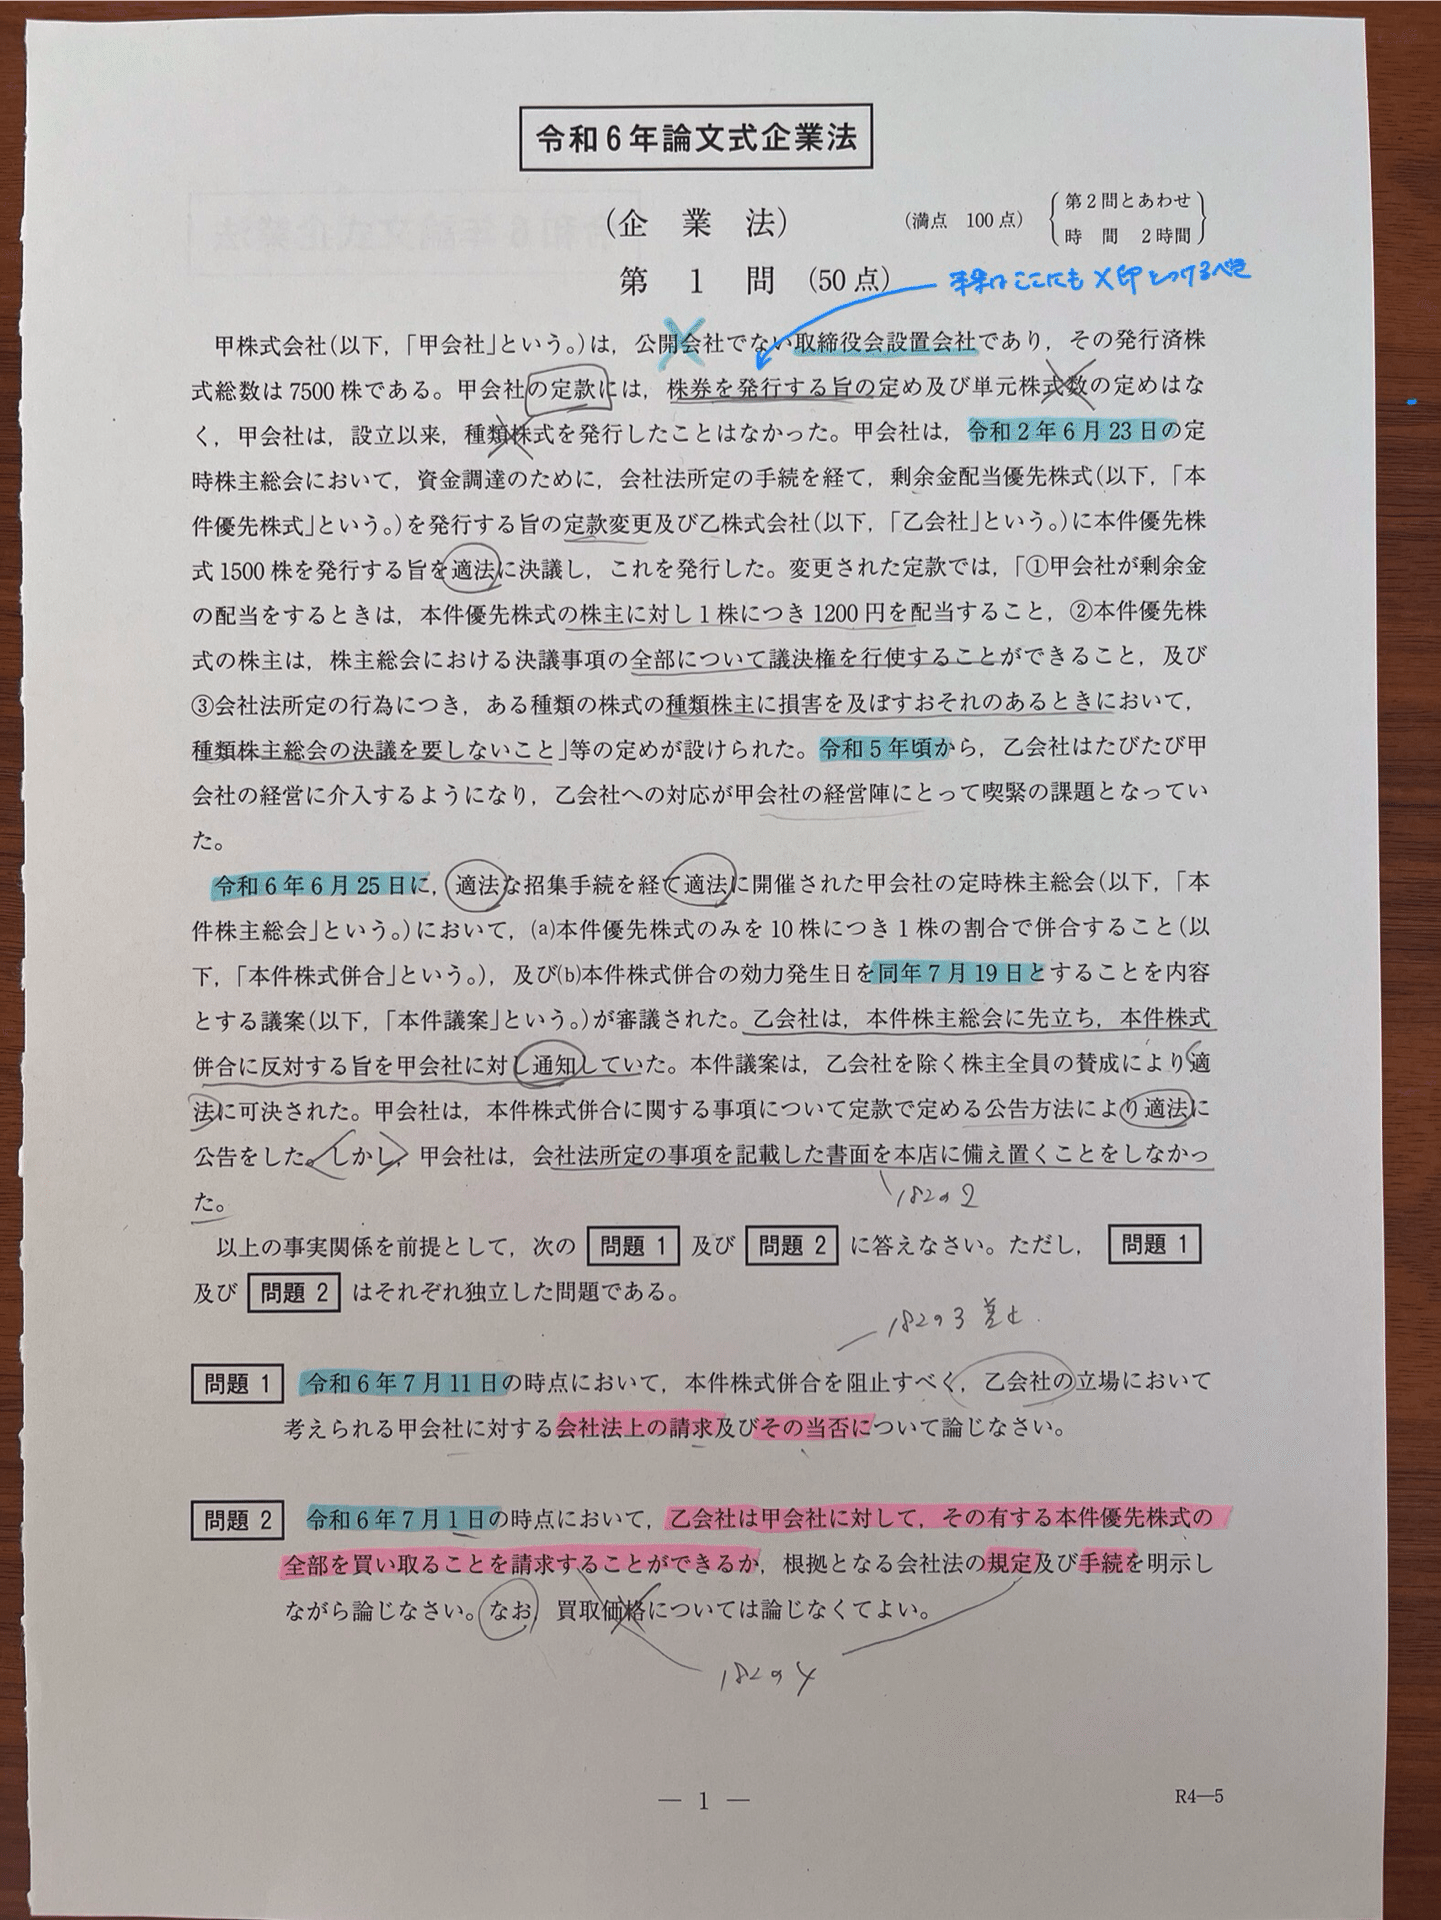 令和6年論文式企業法
(企 業 法) (満点 100点) 第2問とあわせ
時 間 2時間
第 1 問 (50点)
本来はここにも×印をつけるべき
甲株式会社(以下,「甲会社」という。)は,公開会社でない取締役会設置会社であり,その発行済株
式総数は7500株である。甲会社の定款には,株券を発行する旨の定め及び単元株式数の定めはな
く,甲会社は,設立以来,種類株式を発行したことはなかった。甲会社は,令和2年6月23日の定
時株主総会において,資金調達のために,会社法所定の手続を経て,剰余金配当優先株式(以下,「本
件優先株式」という。)を発行する旨の定款変更及び乙株式会社(以下,「乙会社」という。)に本件優先株
式1500株を発行する旨を適法に決議し,これを発行した。変更された定款では,「①甲会社が剰余金
の配当をするときは,本件優先株式の株主に対し1株につき1200円を配当すること,②本件優先株
式の株主は,株主総会における決議事項の全部について議決権を行使することができること,及び
③会社法所定の行為につき,ある種類の株式の種類株主に損害を及ぼすおそれのあるときにおいて,
種類株主総会の決議を要しないこと」等の定めが設けられた。令和5年頃から,乙会社はたびたび甲
会社の経営に介入するようになり,乙会社への対応が甲会社の経営陣にとって喫緊の課題となってい
た。
令和6年6月25日に,適法な招集手続を経て適法に開催された甲会社の定時株主総会(以下,「本
件株主総会」という。)において,(a)本件優先株式のみを10株につき1株の割合で併合すること(以
下,「本件株式併合」という。),及び(b)本件株式併合の効力発生日を同年7月19日とすることを内容
とする議案(以下,「本件議案」という。)が審議された。乙会社は,本件株主総会に先立ち,本件株式
併合に反対する旨を甲会社に対し通知していた。本件議案は,乙会社を除く株主全員の賛成により適
法に可決された。甲会社は,本件株式併合に関する事項について定款で定める公告方法により適法に
公告をした。しかし,甲会社は,会社法所定の事項を記載した書面を本店に備え置くことをしなかっ
た。
182の2
以上の事実関係を前提として,次の 問題1 及び 問題2 に答えなさい。ただし, 問題1
及び 問題2 はそれぞれ独立した問題である。
182の3 差止
問題1 令和6年7月11日の時点において,本件株式併合を阻止すべく,乙会社の立場において
考えられる甲会社に対する会社法上の請求及びその当否について論じなさい。
問題2 令和6年7月1日の時点において,乙会社は甲会社に対して,その有する本件優先株式の
全部を買い取ることを請求することができるか,根拠となる会社法の規定及び手続を明示し
ながら論じなさい。なお,買取価格については論じなくてよい。
182の4
― 1 ―
R4―5